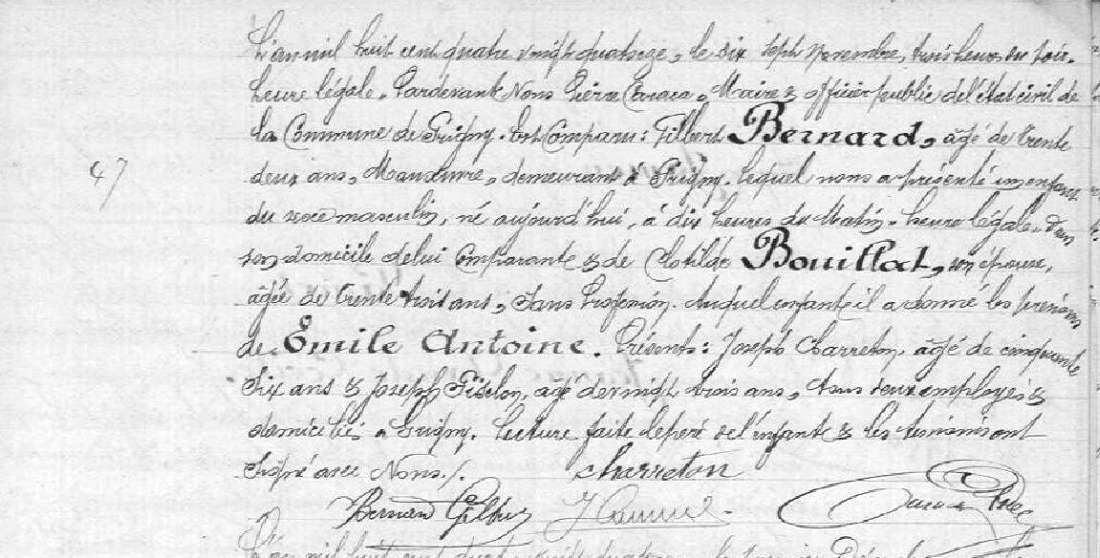 L'an mil huit cent quatre vingt quatorze, le dix sept Novembre, trois heures du soir,
heure légale, Pardevant Nous Pierre Maire & officier public de l'État civil de
la Commune de Grigny. Est Comparu: Gilbert Bernard, âgé de trente
47
deux ans, Manœuvre, demeurant à Grigny. Lequel nous a présenté un enfant
du sexe masculin, né aujourd'hui, à dix heures du Matin, heure légale, dans
son domicile de lui Comparante & de Clotilde Bouillat, son épouse,
âgée de trente trois ans, Sans Profession. Auquel enfant il a donné les prénoms
de Emile Antoine. Présents: Joseph Charreton, âgé de cinquante
Six ans & Joseph âgé de vingt trois ans, tous deux employés &
domiciliés à Grigny. Lecture faite le père de l'enfant & les témoins ont
Signé avec Nous./. Charreton
Bernard Gilbert
L'an mil huit cent quatre vingt quatorze le